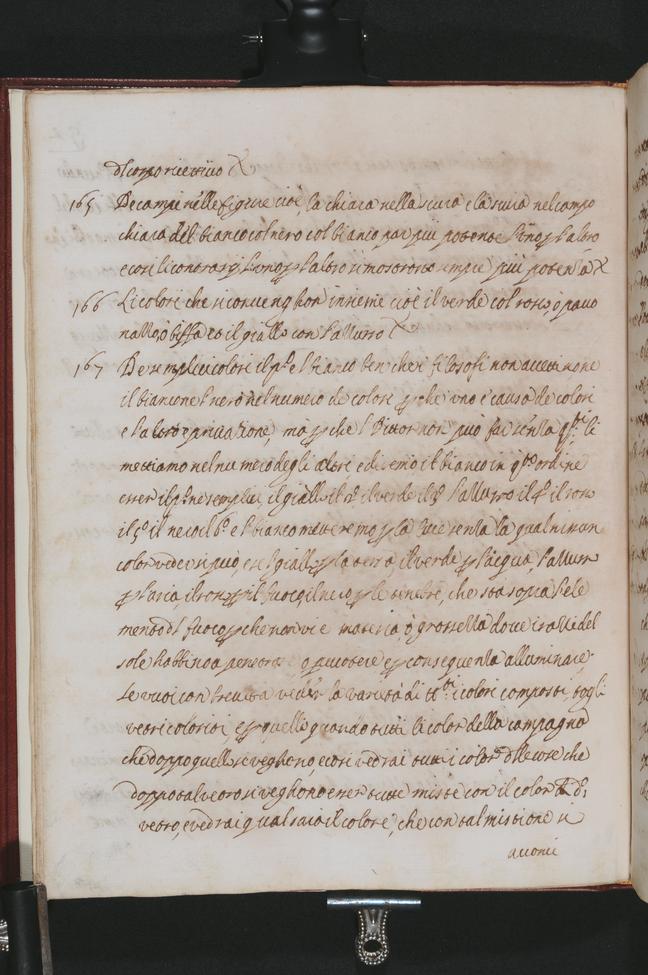 del corpo ricettivo
165 De campi nelle figure cioè, la chiara nella scura e la scura nel campo
chiara del bianco col nero col bianco par più potente l'uno p l'altro
e così li contrarij l'uno p l'altro si mostrono sempre più potenta
166 Li colori che si convenghon insieme cioè il verde col rosso, o pavo
nazzo, o biffa et il giallo con l'azzurro
167 De semplici colori il po e l bianco ben che i filosofi non accettino ne
il bianco ne l nero nel numero de colori p che l'uno e causa de colori
e l'altro e privazione, ma p che l Pittor non può far senza qti li
mettiamo nel numero degli altri e diremo il bianco in qto ordine
esser il po ne semplici, il giallo il 2o il verde il 3o l'azzurro il 4o il rosso
il 5o il nero il 6o e l bianco metteremo p la luce senza la qual nissun
color veder si può, e l giallo p la terra, il verde p l'acqua, l'azzurr
p l'aria, il rosso p il fuoco, il nero p le tenebre, che sta sopra l'ele
mento dl fuoco p che non vi e materia, o grossezza dove i razzi del
sole habbino a penetrare o percotere e p conseguenza alluminare.
Se vuoi con brevità veder la varietà di tti i colori composti togli
vetri coloriti, e p quelli guarda tutti li color della campagna
che doppo quelli si veghono, e così vedrai tutti i color dlle cose che
doppo tal vetro si veghono esser tutte miste con il color di
vetro, e vedrai qual sia il colore, che con tal mistione si
acconci